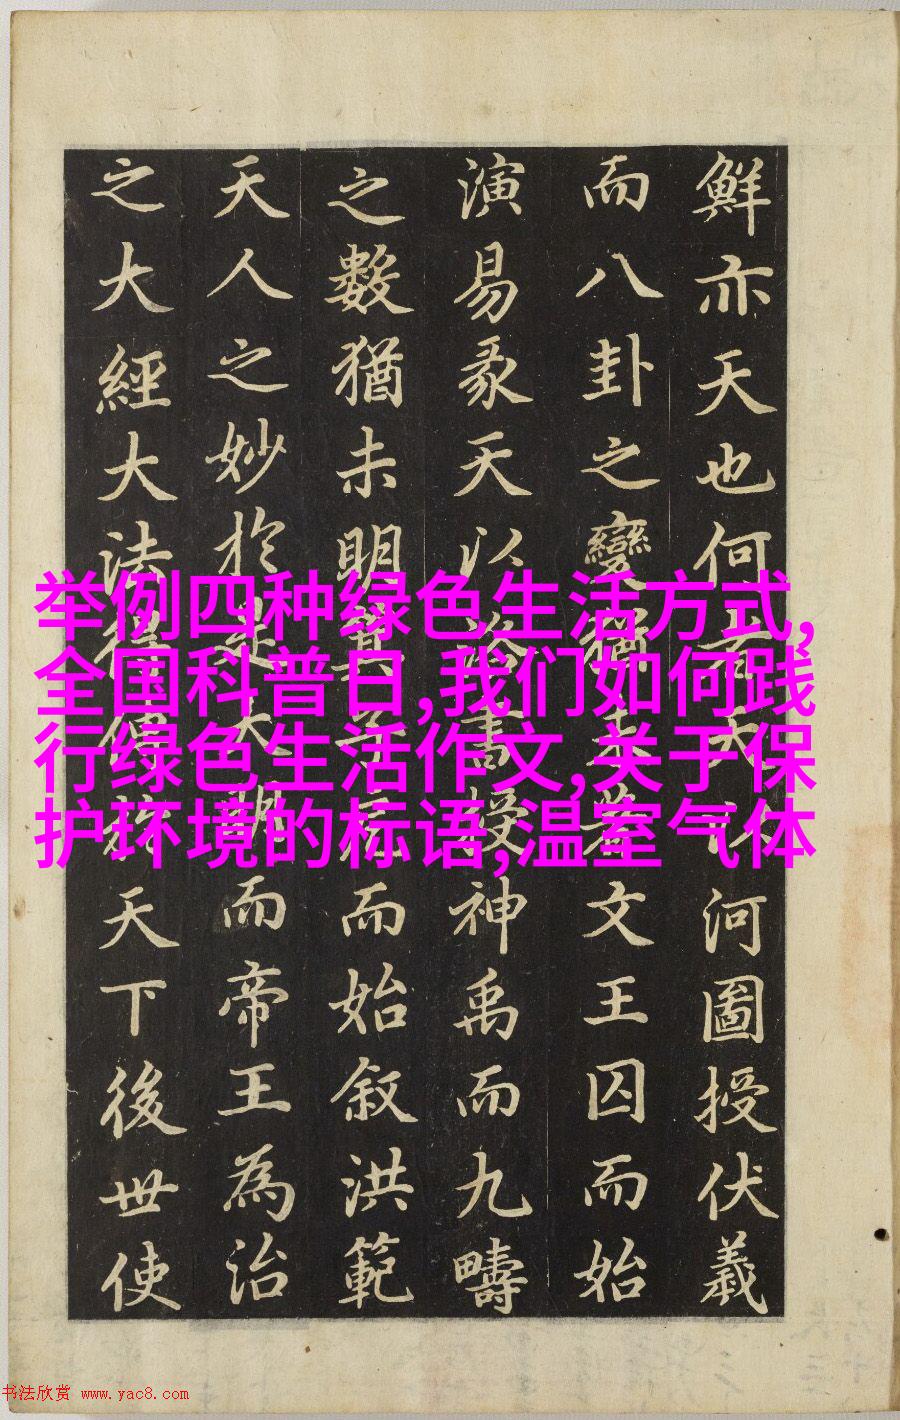 鮮亦天也何河圖授伏羲
而八卦之變猶未著文王囚而始
演易彖天以洛書授神禹而九疇
之數猶未明箕子而始叙洪範
天人之妙於是大明而帝王為治
之大經大法得傳於天下後世使
举例四种绿色生活方式,
全国科普日,我们如何践
行绿色生活作文,关于保
护环境的标语,温室气体
书法欣赏 www.yac8.com